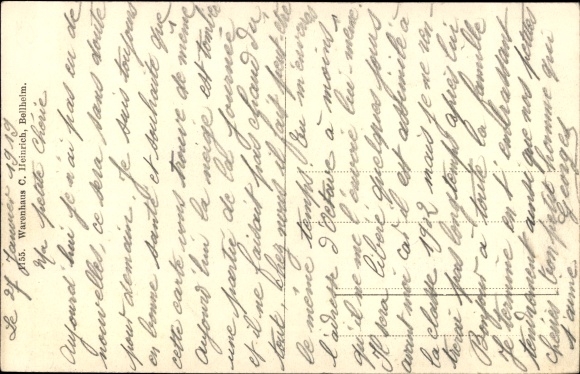 Le 27 Janvier 1919
Ma petite chérie
Aujourd'hui je n'ai pas eu de
nouvelles ce sera sans doute
pour demain. Je suis toujours
en bonne santé et souhaite que
cette carte vous trouve de même
Aujourd'hui la neige est tombée
une partie de la journée
et il ne faisait pas chaud du
tout chez nous il fait peut être
le même temps. Tu m'enverras
l'adresse d'Octave à moins
qu'il ne me l'envoie lui même.
Il sera libéré quelques jours
avant moi car il est assimilé à
la classe 1912 mais je ne res-
terai pas longtemps après lui
Bonjour à toute la famille
Je termine en t'embrassant
tendrement ainsi que nos petites
chéries Ton petit homme qui
t'aime Georges
1155. Warenhaus C. Heinrich, Bellheim.